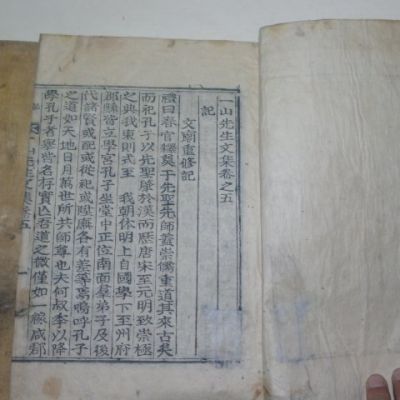 一山先生文集卷之五
記
文廟重修記
禮曰春官釋奠于先聖先師蓋崇儒重道其來古矣
而祀孔子以先聖肇於漢而歷唐宋至元明致崇極
之典我東則式至 我朝休明上自國學下至州府
郡縣皆立學宮孔子坐堂中正位南面羣弟子及後
代諸賢或配或從祀或陞廡各有差等焉嗚呼孔子
之道如天地日月萬世所共師尊也夫何叔季以降
學孔子者擧皆名存實亡吾道之微僅如一線咸郡
一山先生文集卷五